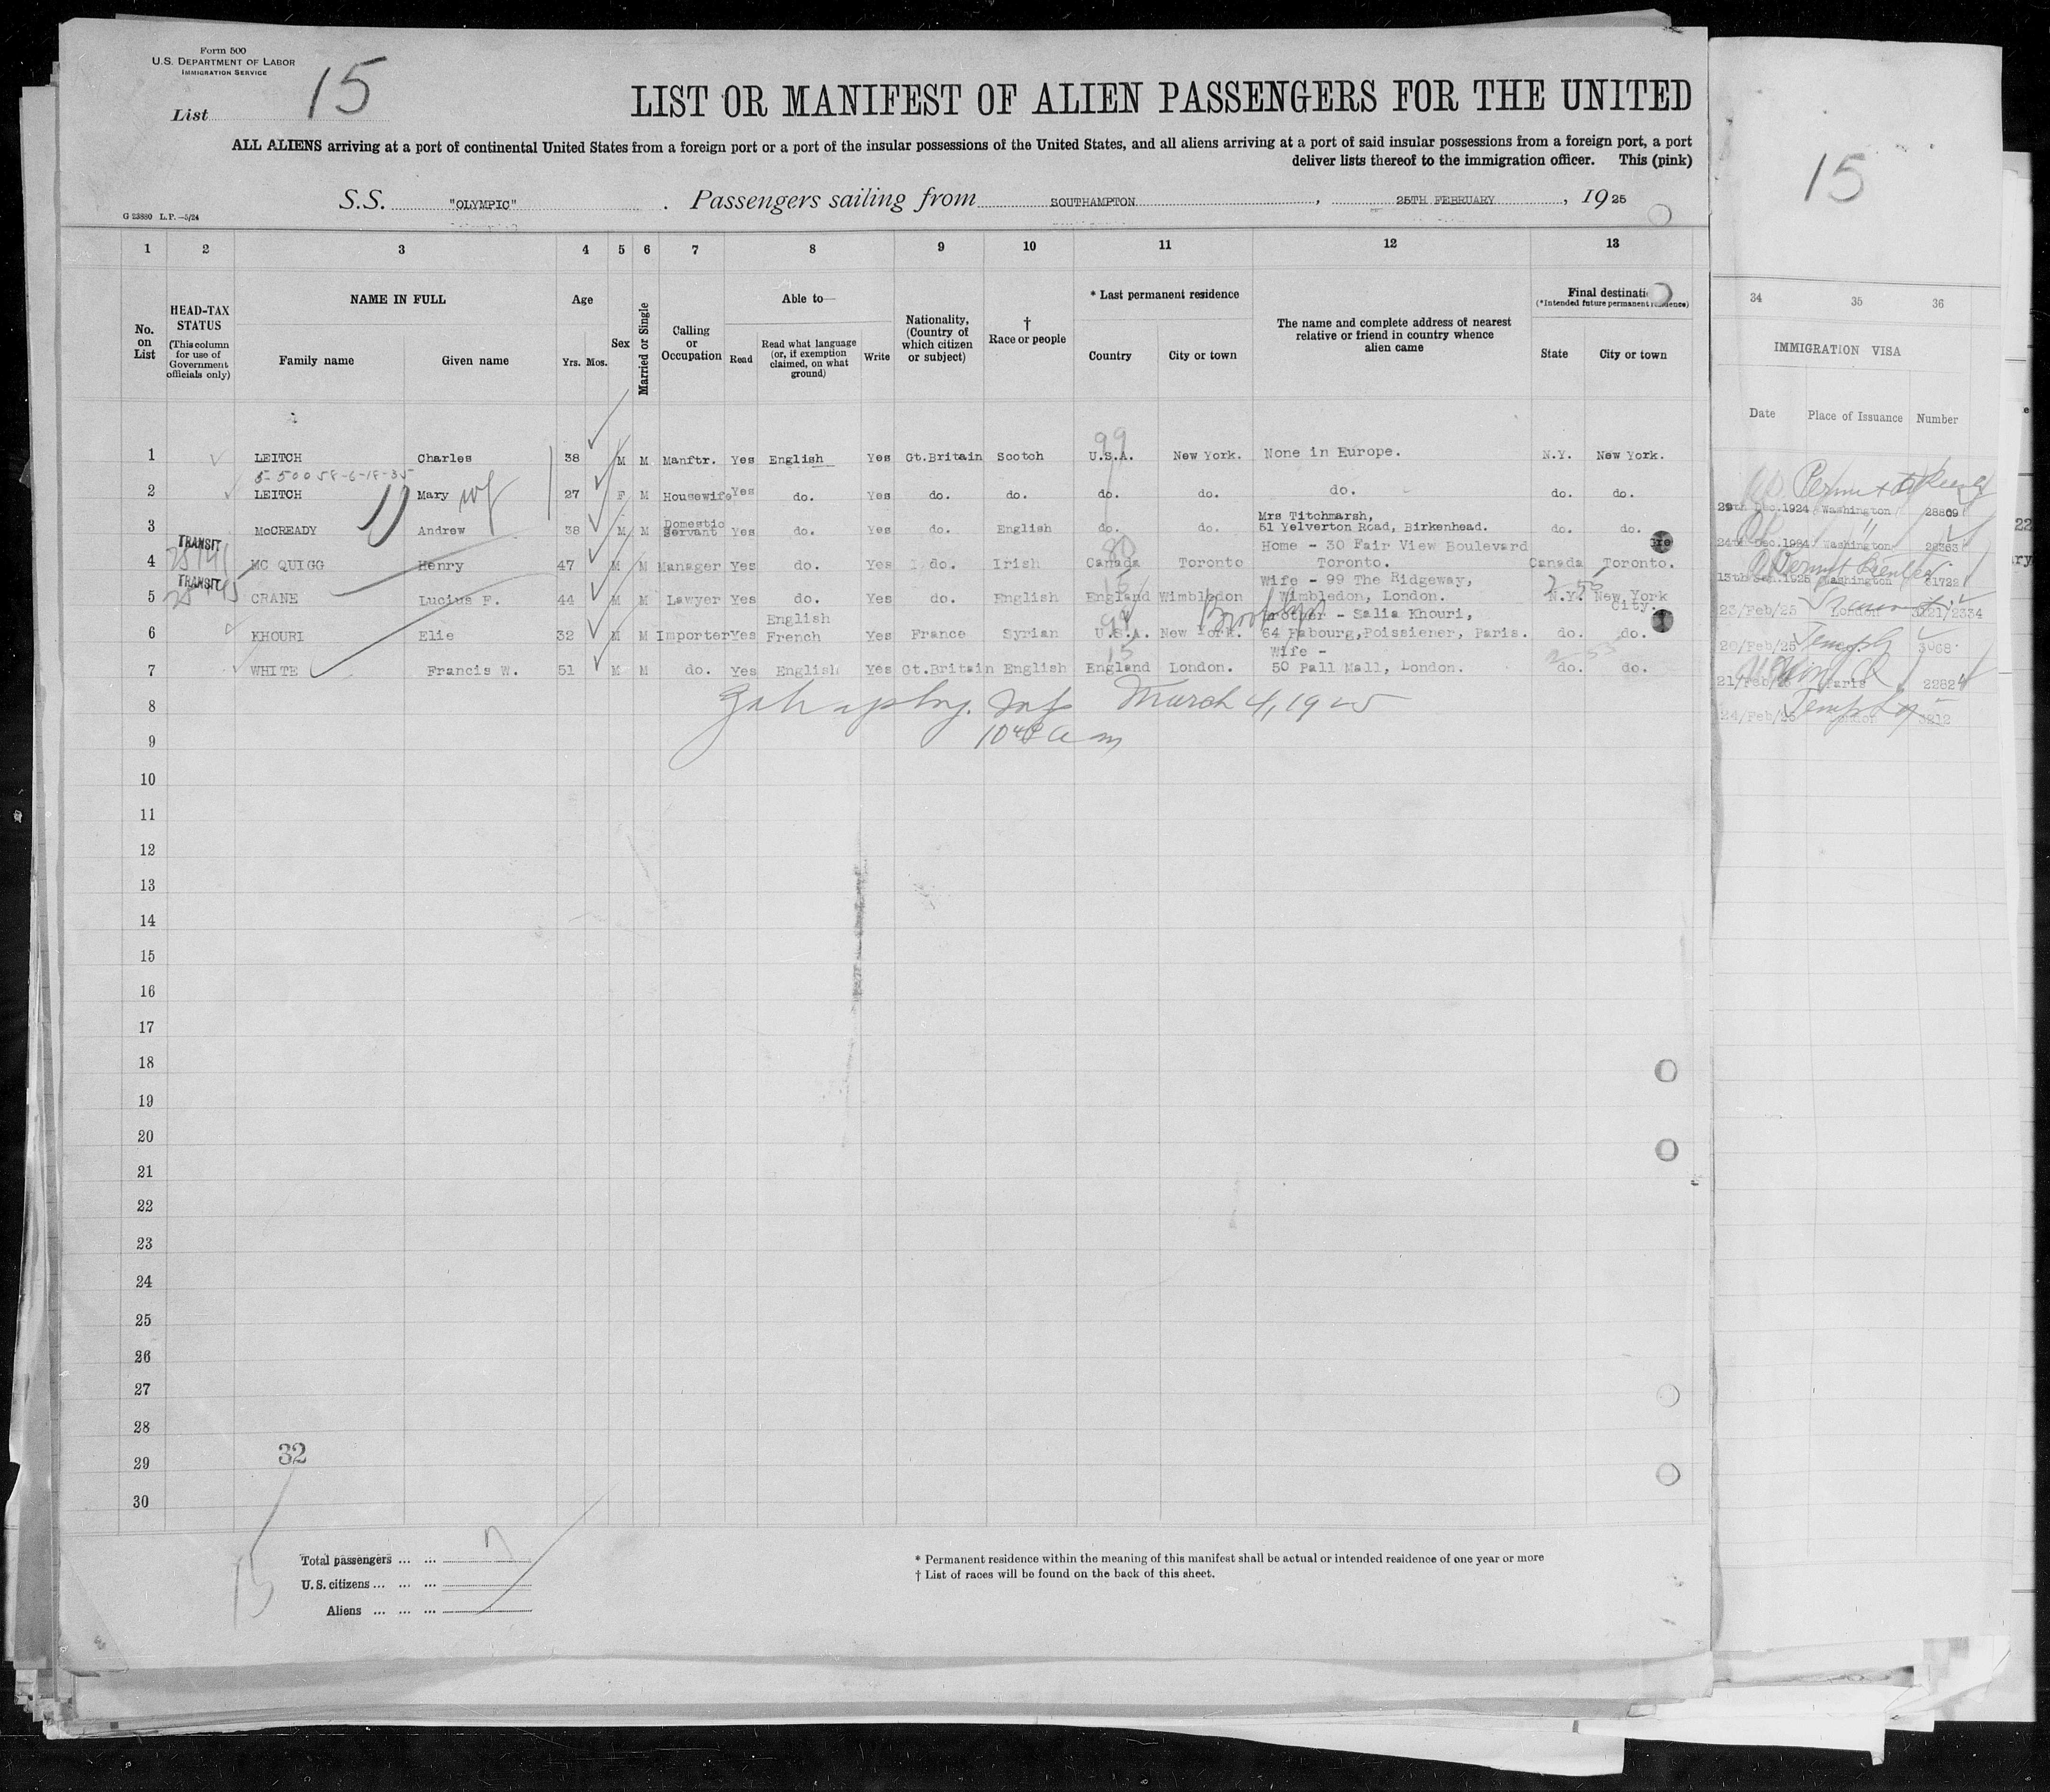 Form 500
U.S. DEPARTMENT OF LABOR
IMMIGRATION SERVICE
List 15
LIST OR MANIFEST OF ALIEN PASSENGERS FOR THE UNITED
ALL ALIENS arriving at a port of continental United States from a foreign port or a port of the insular possessions of the United States, and all aliens arriving at a port of said insular possessions from a foreign port, a port
deliver lists thereof to the immigration officer. This (pink)
S.S. "OLYMPIC" . Passengers sailing from SOUTHAMPTON , 25TH FEBRUARY , 1925
G 23880 L.P.—5/24
15
1 2 3 4 5 6 7 8 9 10 11 12 13
34 35 36
No. on List
HEAD-TAX STATUS
(This column for use of Government officials only)
NAME IN FULL
Family name Given name
Age
Yrs. Mos.
Sex
Married or Single
Calling or Occupation
Able to—
Read
Read what language (or, if exemption claimed, on what ground)
Write
Nationality, (Country of which citizen or subject)
† Race or people
* Last permanent residence
Country City or town
The name and complete address of nearest relative or friend in country whence alien came
Final destination
(*Intended future permanent residence)
State City or town
IMMIGRATION VISA
Date Place of Issuance Number
99
1 LEITCH Charles 38 M M Manftr. Yes English Yes Gt.Britain Scotch U.S.A. New York. None in Europe. N.Y. New York.
2 LEITCH Mary wf 27 F M Housewife Yes do. Yes do. do. do. do. do. do. do.
29th Dec.1924 Washington 28809
Mrs Titchmarsh,
3 McCREADY Andrew 38 M M Domestic Servant Yes do. Yes do. English do. do. 51 Yelverton Road, Birkenhead. do. do.
24th Dec.1924 Washington
TRANSIT
80
Home - 30 Fair View Boulevard
4 MC QUIGG Henry 47 M M Manager Yes do. Yes do. Irish Canada Toronto Toronto. Canada Toronto.
TRANSIT
15
Wife - 99 The Ridgeway,
5 CRANE Lucius F. 44 M M Lawyer Yes do. Yes do. English England Wimbledon Wimbledon, London. N.Y. New York City.
23/Feb/25 London
99
Brooklyn
Brother - Salia Khouri,
6 KHOURI Elie 32 M M Importer Yes English French Yes France Syrian U.S.A. New York. 64 Fabourg,Poissiener, Paris. do. do.
20/Feb/25 3068
15
Wife -
7 WHITE Francis W. 51 M M do. Yes English Yes Gt.Britain English England London. 50 Pall Mall, London. do. do.
21/Feb/25 Paris
24/Feb/25 London 3212
March 4, 1925
8
9
10
11
12
13
14
15
16
17
18
19
20
21
22
23
24
25
26
27
28
29
30
32
15
Total passengers ... ... 7
U.S. citizens ... ... ...
Aliens ... ... ...
* Permanent residence within the meaning of this manifest shall be actual or intended residence of one year or more
† List of races will be found on the back of this sheet.